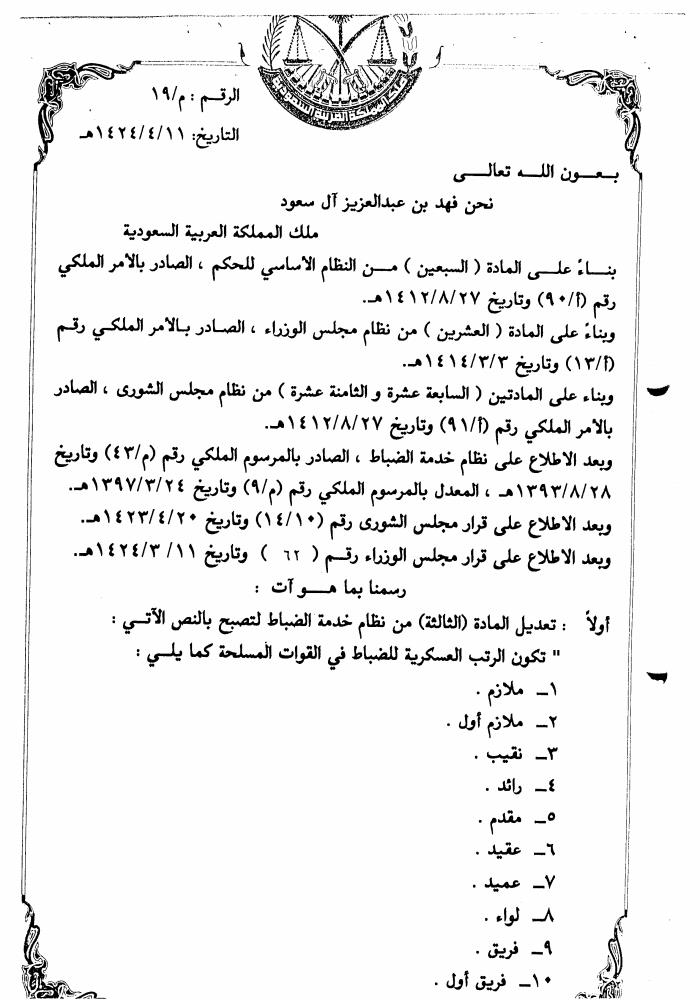 الرقـم : م/١٩
التاريخ: ١٤٢٤/٤/١١هـ
بـعـــون اللـــه تعالـــى
نحن فهد بن عبدالعزيز آل سعود
ملك المملكة العربية السعودية
بنـــاءً علـــى المادة ( السبعين ) مـــن النظام الأساسي للحكم ، الصادر بالأمر الملكي
رقم (أ/٩٠) وتاريخ ١٤١٢/٨/٢٧هـ.
وبناءً على المادة ( العشرين ) من نظام مجلس الوزراء ، الصـادر بـالأمر الملكـي رقـم
(أ/١٣) وتاريخ ١٤١٤/٣/٣هـ.
وبناء على المادتين ( السابعة عشرة و الثامنة عشرة ) من نظام مجلس الشورى ، الصادر
بالأمر الملكي رقم (أ/٩١) وتاريخ ١٤١٢/٨/٢٧هـ.
وبعد الاطلاع على نظام خدمة الضباط ، الصادر بالمرسوم الملكي رقم (م/٤٣) وتاريخ
١٣٩٣/٨/٢٨هـ ، المعدل بالمرسوم الملكي رقم (م/٩) وتاريخ ١٣٩٧/٣/٢٤هـ.
وبعد الاطلاع على قرار مجلس الشورى رقم (١٤/١٠) وتاريخ ١٤٢٣/٤/٢٠هـ.
وبعد الاطلاع على قرار مجلس الوزراء رقـــم ( ٦٢ ) وتاريخ ١١/ ١٤٢٤/٣هـ.
رسمنا بما هـــو آت :
أولاً : تعديل المادة (الثالثة) من نظام خدمة الضباط لتصبح بالنص الآتـــي :
" تكون الرتب العسكرية للضباط في القوات المسلحة كما يلـــي :
١ـ ملازم .
٢ـ ملازم أول .
٣ـ نقيب .
٤ـ رائد .
٥ـ مقدم .
٦ـ عقيد .
٧ـ عميد .
٨ـ لواء .
٩ـ فريق .
١٠ـ فريق أول .